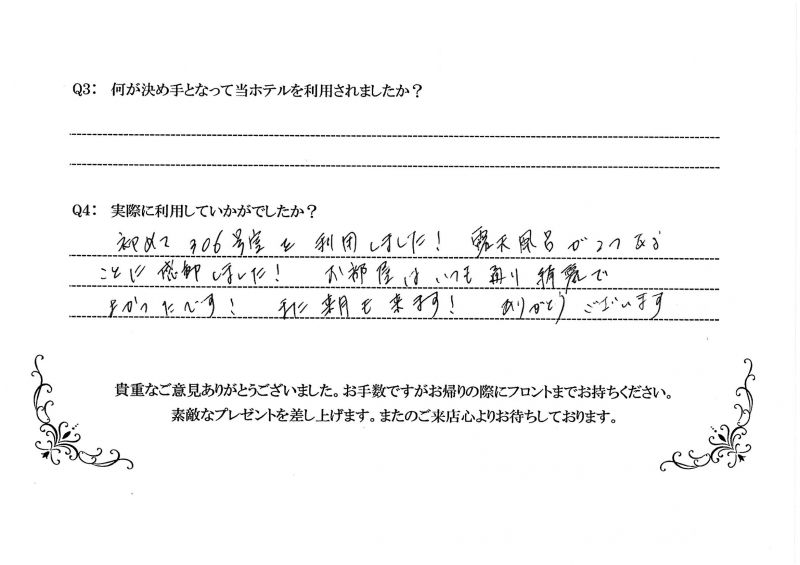 Q3: 何が決め手となって当ホテルを利用されましたか?
Q4: 実際に利用していかがでしたか?
初めて306号室を利用しました! 露天風呂が2つある
ことに感動しました! お部屋はいつも通り綺麗で
よかったです! また来月も来ます! ありがとうございます
貴重なご意見ありがとうございました。お手数ですがお帰りの際にフロントまでお持ちください。
素敵なプレゼントを差し上げます。またのご来店心よりお待ちしております。